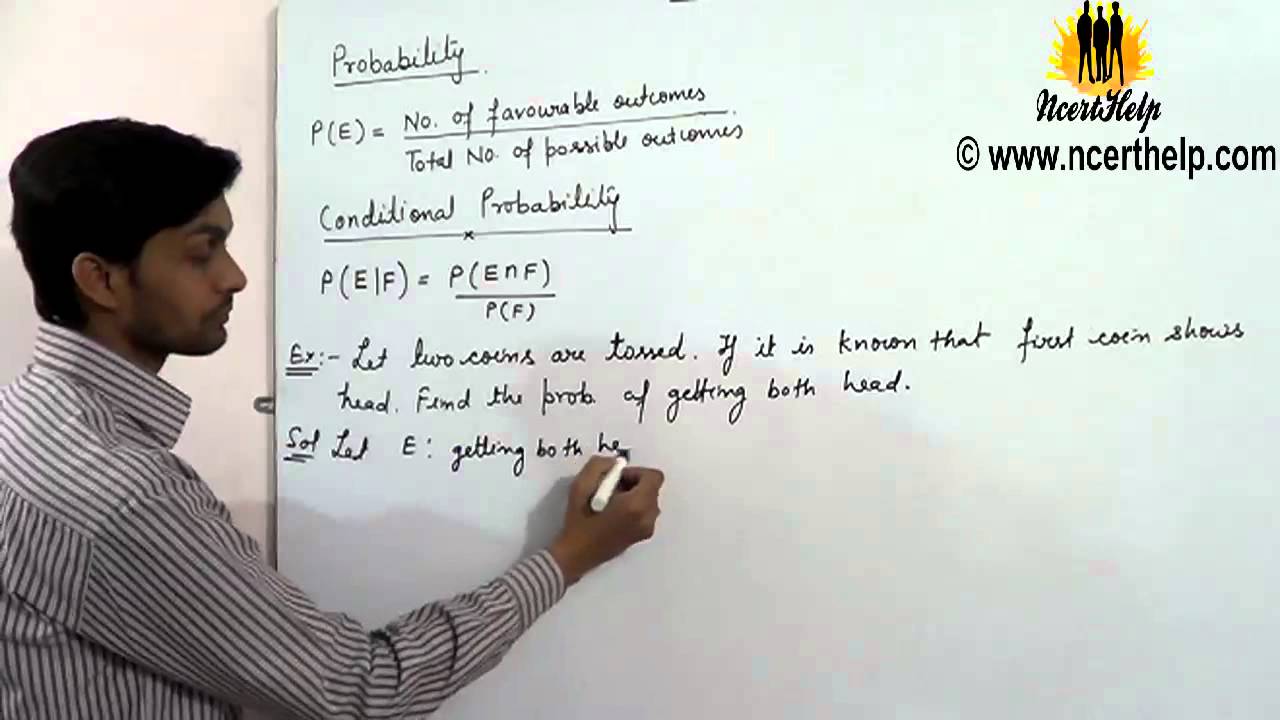 Probability
P(E) = No. of favourable outcomes
Total No. of possible outcomes
Conditional Probability
P(E|F) = P(E∩F)
P(F)
Ex:- Let two coins are tossed. If it is known that first coin shows
head. Find the prob. of getting both head.
Sol Let E: getting both he
NcertHelp
© www.ncerthelp.com